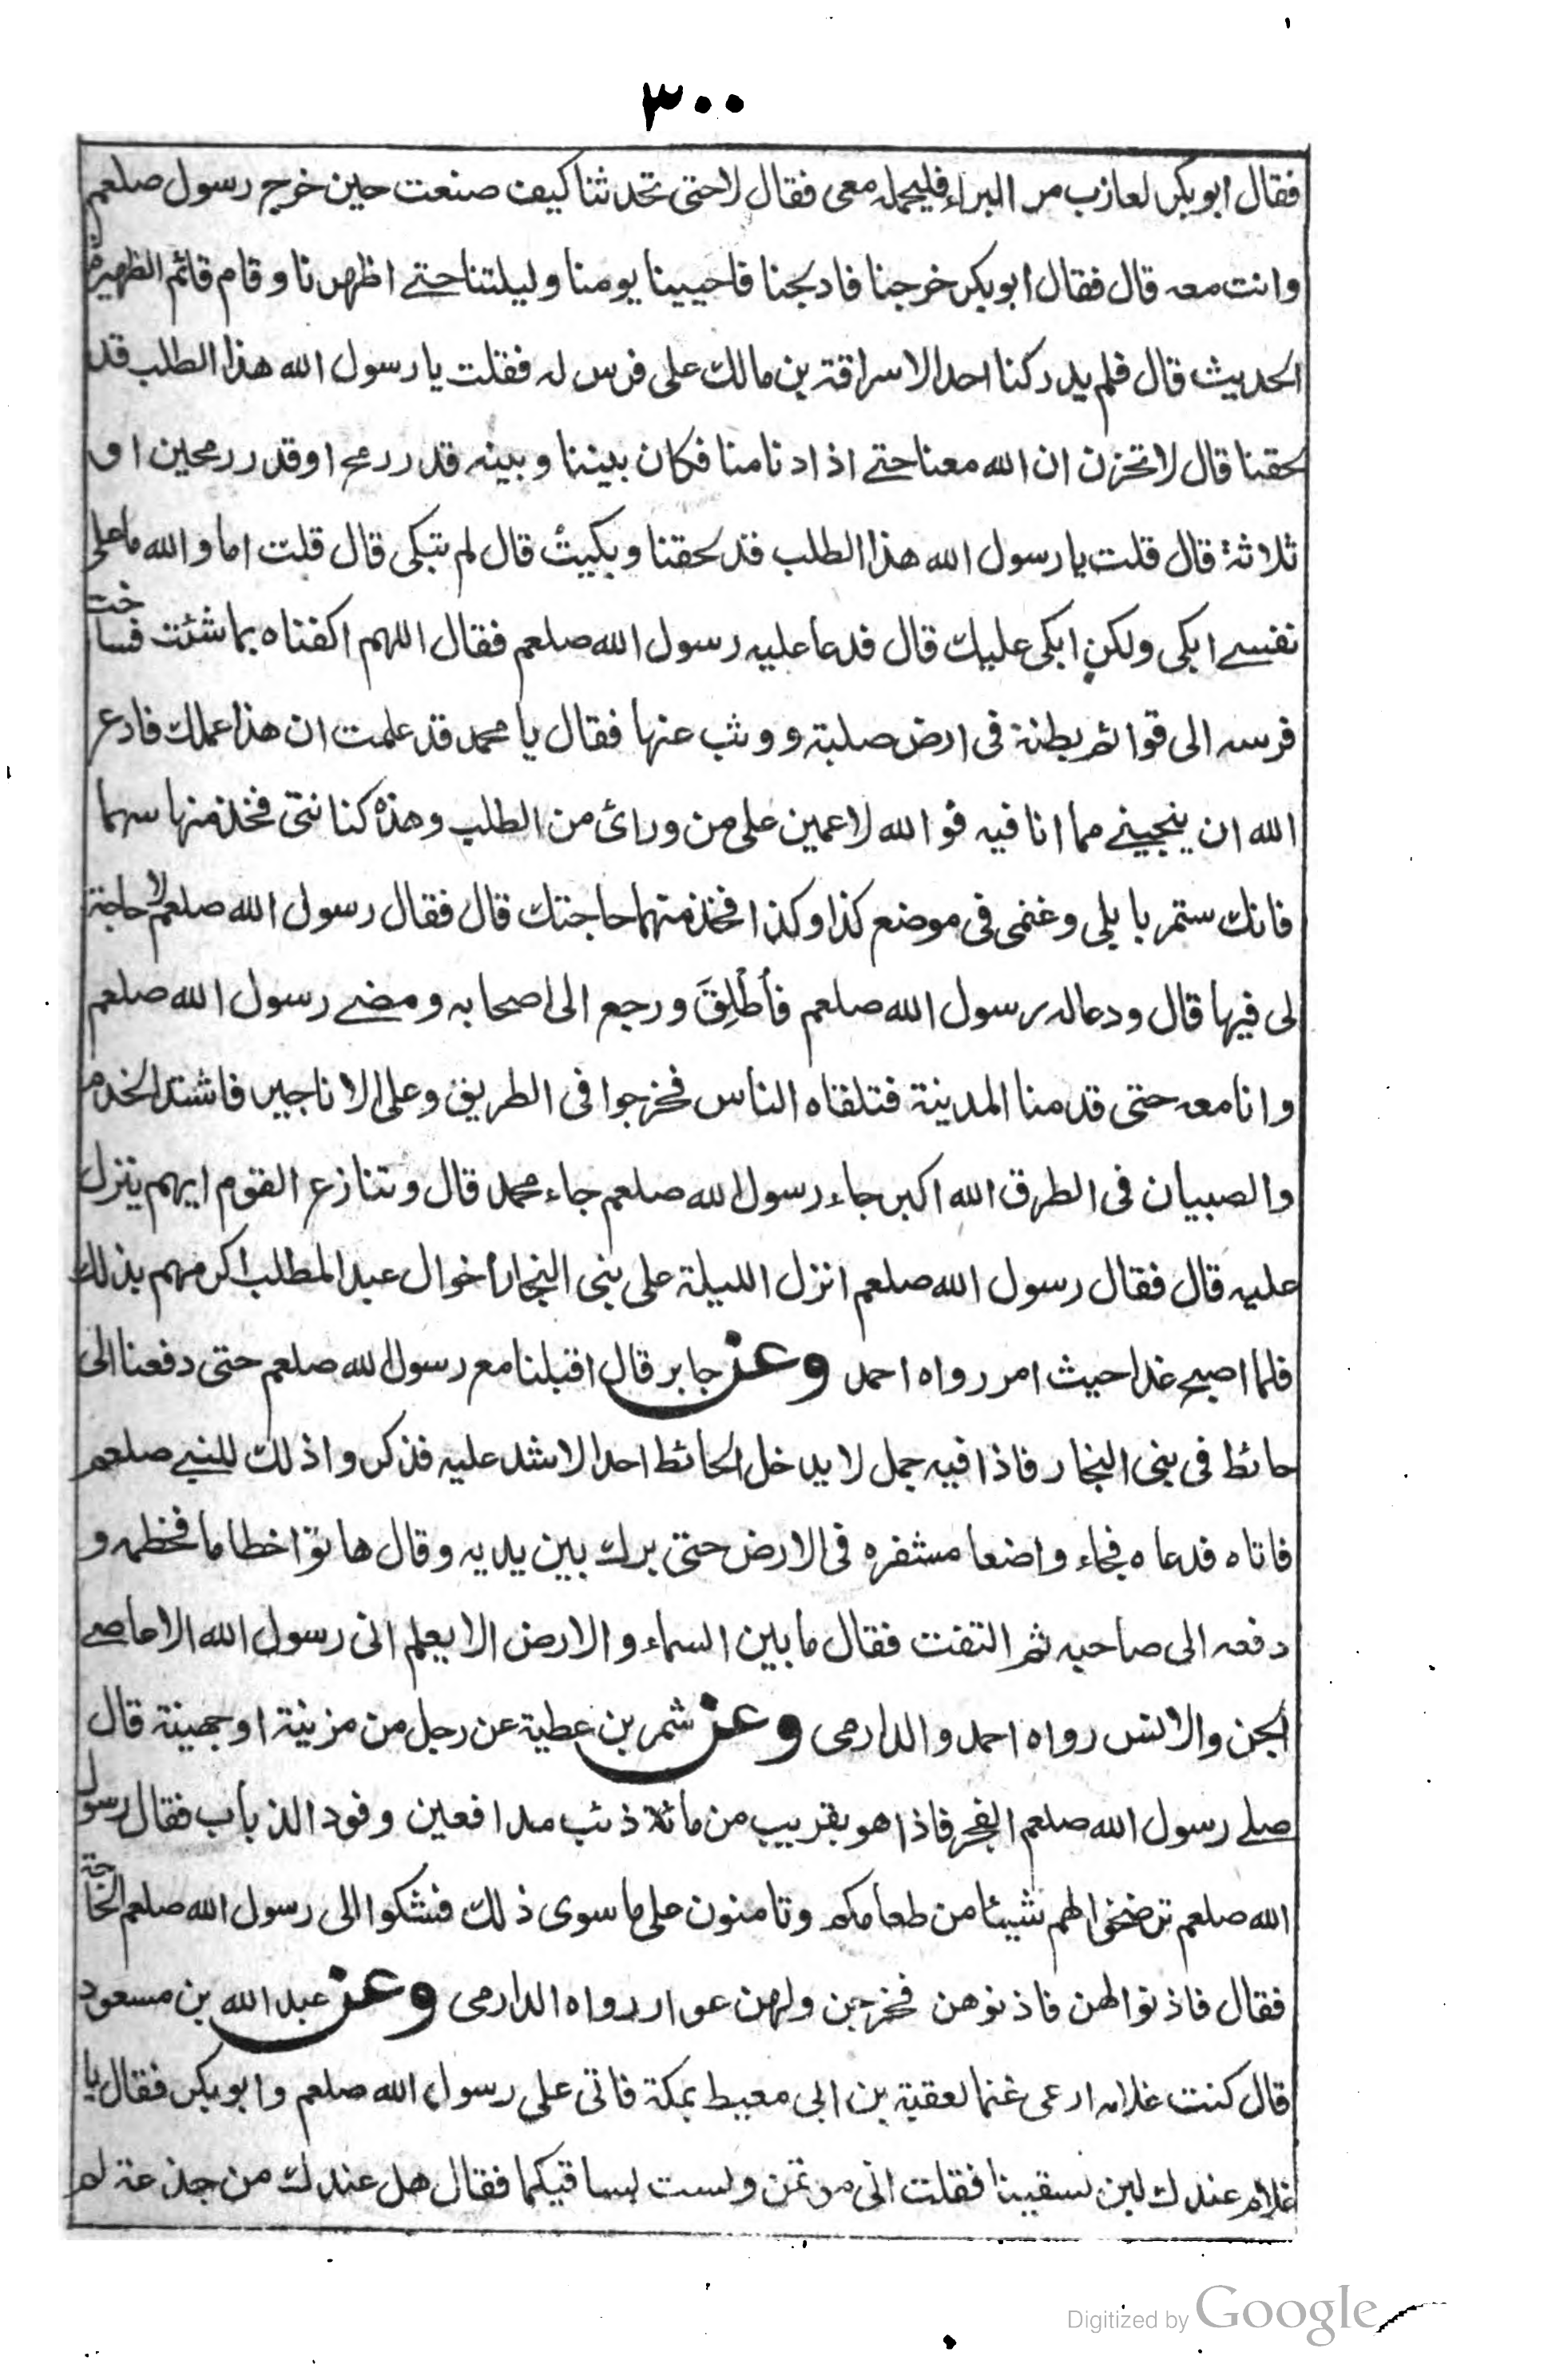 ٣٠٠
فقال ابوبكر لعازب مر البراء فليحمله معى فقال لا حتى تحدثنا كيف صنعت حين خرج رسول صلعم
وانت معه قال فقال ابوبكر خرجنا فادلجنا فاحيينا يومنا وليلتنا حتے اظهرنا وقام قائم الظهيرة
الحديث قال فلم يدركنا احد الا سراقة بن مالك على فرس له فقلت يا رسول الله هذا الطلب قد
لحقنا قال لا تحزن ان الله معنا حتے اذا دنا منا فكان بيننا وبينه قدر رمح او قدر رمحين او
ثلاثة قال قلت يا رسول الله هذا الطلب قد لحقنا وبكيتُ قال لم تبكى قال قلت اما والله ما على
نفسے ابكى ولكن ابكى عليك قال فدعا عليه رسول الله صلعم فقال اللهم اكفناه بما شئت فساخت
فرسه الى قوائم بطنة فى ارض صلبة ووثب عنها فقال يا محمد قد علمت ان هذا عملك فادع
الله ان ينجينے مما انا فيه فو الله لاعمين على من ورائ من الطلب وهذه كنانتى فخذ منها سهما
فانك ستمر بابلى وغنمى فى موضع كذا وكذا فخذ منهما حاجتك قال فقال رسول الله صلعم لا حاجة
لى فيها قال ودعاله رسول الله صلعم فأُطْلِقَ ورجع الى اصحابه ومضے رسول الله صلعم
وانا معه حتى قدمنا المدينة فتلقاه الناس فخرجوا فى الطريق وعلى الاناجير فاشتد الخدم
والصبيان فى الطرق الله اكبر جاء رسول الله صلعم جاء محمد قال وتنازع القوم ايهم ينزل
عليه قال فقال رسول الله صلعم انزل الليلة على بنى النجار أخوال عبد المطلب اكرمهم بذلك
فلما اصبح غدا حيث امر رواه احمد وعن جابر قال اقبلنا مع رسول الله صلعم حتى دفعنا الى
حائط فى بنى النجار فاذا فيه جمل لا يدخل الحائط احد الا شد عليه فذكروا ذلك للنبے صلعم
فاتاه فدعاه فجاء واضعا مشفره فى الارض حتى برك بين يديه وقال هاتوا خطاما فخطمه و
دفعه الى صاحبه ثم التفت فقال ما بين السماء والارض الا يعلم انى رسول الله الا عاصے
الجن والانس رواه احمد والدارمى وعن شمر بن عطية عن رجل من مزينة او جهينة قال
صلے رسول الله صلعم الفجر فاذا هو بقريب من مائة ذئب مدافعين وفود الذباب فقال رسول
الله صلعم ترضخوا لهم شيئا من طعامكم وتامنون على ما سوى ذلك فشكوا الى رسول الله صلعم الحاجة
فقال فاذنوا لهن فاذنوهن فخرجن ولهن عوار رواه الدارمى وعن عبد الله بن مسعود
قال كنت غلاما ارعى غنما لعقبة بن ابى معيط بمكة فاتى على رسول الله صلعم وابوبكر فقال يا
غلام عندك لبن تسقينا فقلت انى موتمن ولست بساقيكما فقال هل عندك من جذعة لم
Digitized by Google